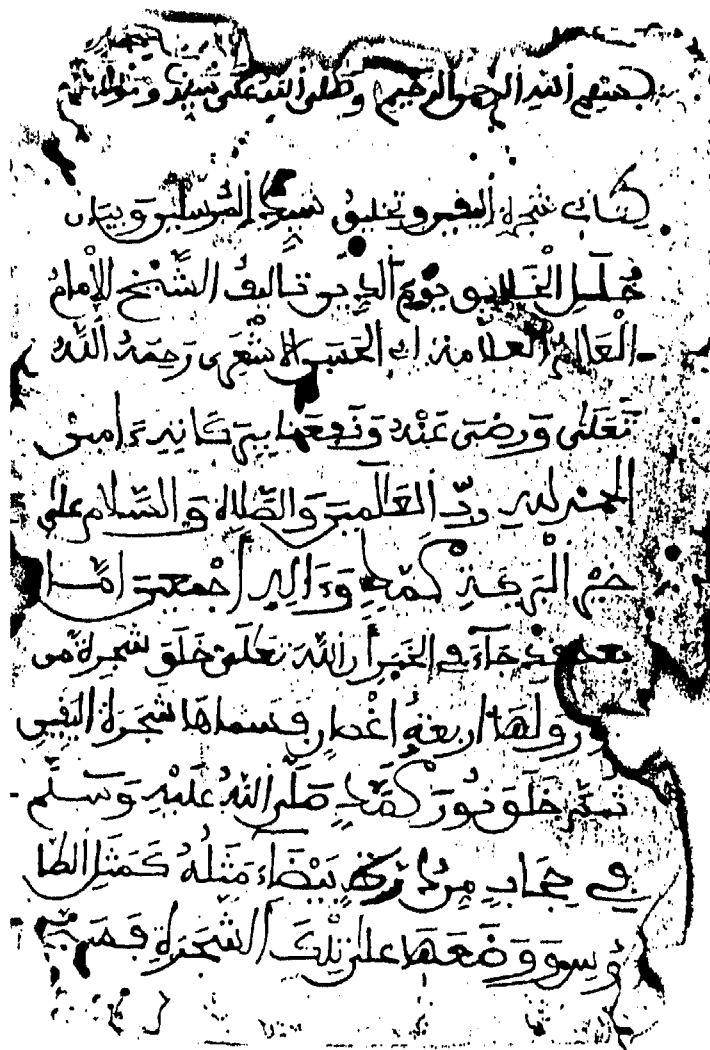 بسم الله الرحمن الرحيم وصلى الله على سيدنا ومولانا
كتاب شجرة اليقين وتخليق سيد المرسلين وبيان
حال الخلايق يوم الدين تاليف الشيخ الإمام
العالم العلامة ابي الحسن الاشعري رحمه الله
تعلى ورضي عنه ونفعنا ببركاته ءامين
الحمد لله رب العالمين والصلاة والسلام على
خير البرية محمد وءاله أجمعين امّا
بعد فقد جآء في الخبر أن الله تعلى خلق شجرة من
ولها اربعة اغصان فسماها شجرة اليقين
ثم خلق نور محمد صلى الله عليه وسلم
في حجاب من درة بيضاء مثله كمثل الطا
ؤس ووضعها على تلك الشجرة